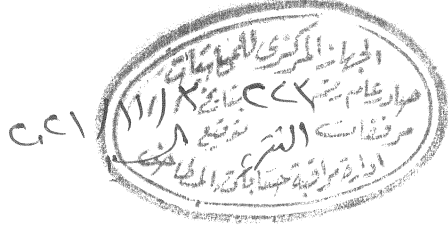 الجهاز المركزى للمحاسبات
صادر عام رقم ٢٢٣ بتاريخ ٣ / ١١ / ٢٠٢١
مرفقات توقيع
ادارة مراقبة حسابات المطاحن